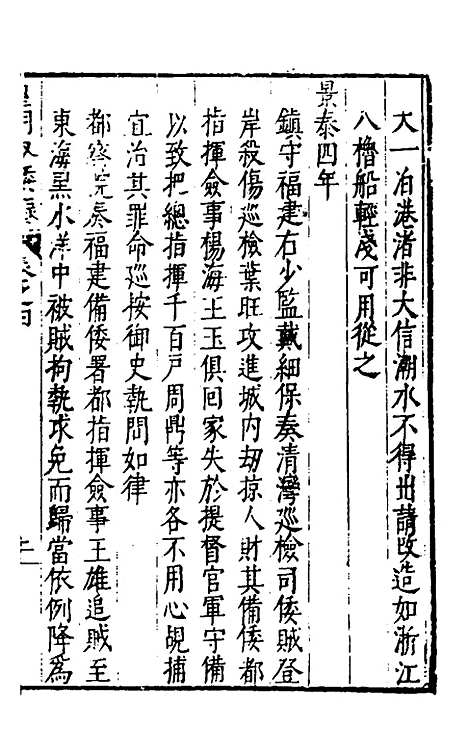 大一泊港渚非大信潮水不得出請改造如浙江
八櫓船輕淺可用從之
景泰四年
鎮守福建右少監戴細保奏清灣巡檢司倭賊登
岸殺傷巡檢葉旺攻進城内刼掠人財其備倭都
指揮僉事楊海王玉俱回家失於提督官軍守備
以致把總指揮千百戶周鼎等亦各不用心覘捕
宜治其罪命巡按御史執問如律
都察院奏福建備倭署都指揮僉事王雄追賊至
東海黑水洋中被賊拘執求免而歸當依例降為